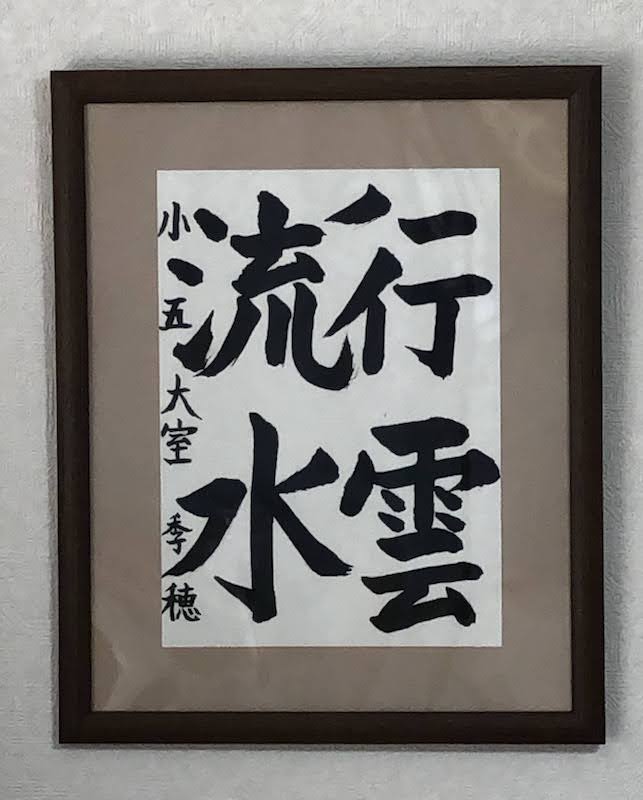 行雲
流水
小五 大室 季穂